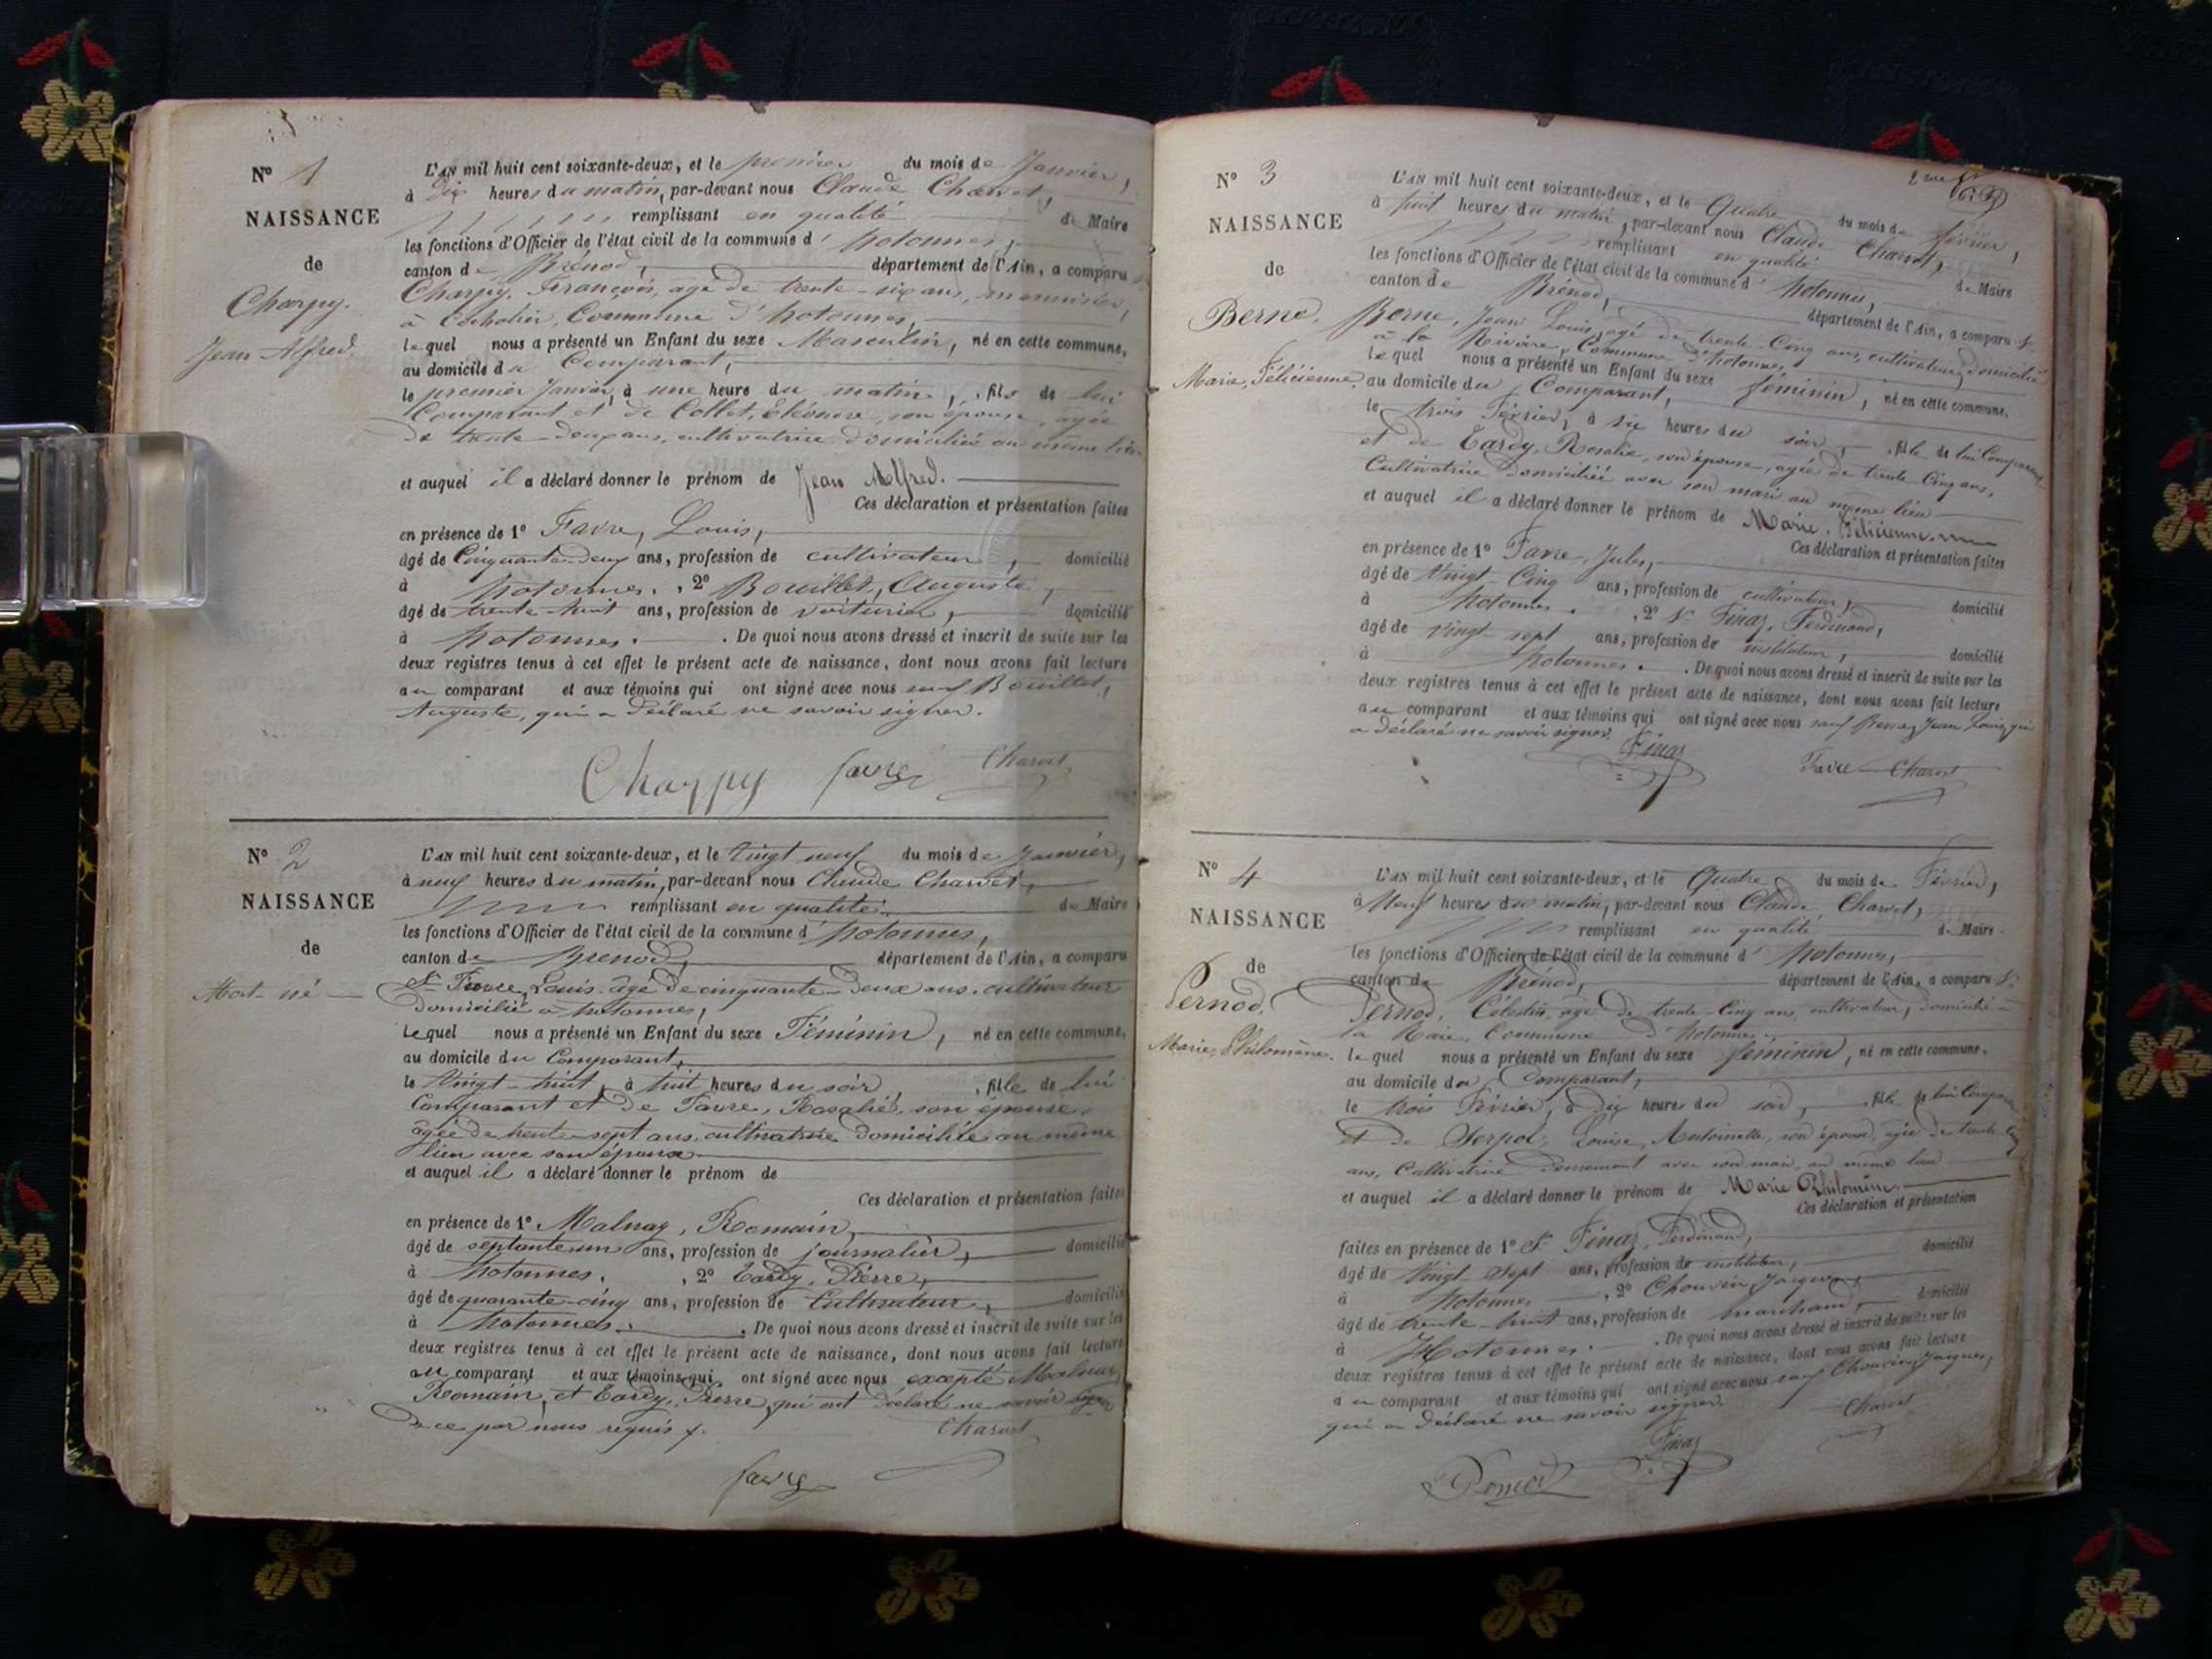 N° 1
NAISSANCE
de
Charpy.
Jean Alfred.
L'AN mil huit cent soixante-deux, et le premier du mois de Janvier,
à dix heures du matin, par-devant nous Claude Charvet,
remplissant en qualité de Maire
les fonctions d'Officier de l'état civil de la commune d'hotonnes,
canton de Brénod, département de l'Ain, a comparu
Charpy, François, agé de trente-six ans, menuisier,
à Commune d'hotonnes,
lequel nous a présenté un Enfant du sexe Masculin, né en cette commune,
au domicile du Comparant,
le premier Janvier, à une heure du matin, fils de lui
Comparant et de Collet, Eléonore, son épouse, agée
de trente-deux ans, cultivatrice domiciliée au même lieu
et auquel il a déclaré donner le prénom de Jean Alfred.
Ces déclaration et présentation faites
en présence de 1° Favre, Louis,
âgé de Cinquante-deux ans, profession de cultivateur, domicilié
à hotonnes. , 2° Bouillet, Auguste,
âgé de trente-huit ans, profession de voiturier, domicilié
à hotonnes. . De quoi nous avons dressé et inscrit de suite sur les
deux registres tenus à cet effet le présent acte de naissance, dont nous avons fait lecture
au comparant et aux témoins qui ont signé avec nous sauf Bouillet,
Auguste, qui a déclaré ne savoir signer.
Charpy favre Charvet
N° 2
NAISSANCE
de
Mort-né
L'AN mil huit cent soixante-deux, et le vingt neuf du mois de Janvier,
à neuf heures du matin, par-devant nous Claude Charvet,
remplissant en qualité de Maire
les fonctions d'Officier de l'état civil de la commune d'hotonnes,
canton de Brenod, département de l'Ain, a comparu
Sr Favre, Louis, âgé de cinquante-deux ans, cultivateur
domicilié à hotonnes,
lequel nous a présenté un Enfant du sexe Féminin, né en cette commune,
au domicile du Comparant,
le Vingt-huit, à huit heures du soir, fille de lui
Comparant et de Favre, Rosalie, son épouse,
âgée de trente-sept ans, cultivatrice domiciliée au même
lieu avec son époux
et auquel il a déclaré donner le prénom de
Ces déclaration et présentation faites
en présence de 1° Malnay, Romain,
âgé de septante-un ans, profession de journalier, domicilié
à hotonnes. , 2° Tardy, Pierre,
âgé de quarante-cinq ans, profession de Cultivateur, domicilié
à hotonnes. . De quoi nous avons dressé et inscrit de suite sur les
deux registres tenus à cet effet le présent acte de naissance, dont nous avons fait lecture
au comparant et aux témoins qui ont signé avec nous excepté Malnay
Romain, et Tardy, Pierre, qui ont déclaré ne savoir signer
de ce par nous requis.
Charvet
favre
N° 3
NAISSANCE
de
Berne,
Marie, Félicienne.
L'AN mil huit cent soixante-deux, et le Quatre du mois de février,
à huit heures du matin, par-devant nous Claude Charvet,
remplissant en qualité de Maire
les fonctions d'Officier de l'état civil de la commune d'hotonnes,
canton de Brénod, département de l'Ain, a comparu Sr
Berne, Jean Louis, agé de trente-Cinq ans, cultivateur, domicilié
à la Rivoire, Commune d'hotonnes,
lequel nous a présenté un Enfant du sexe féminin, né en cette commune,
au domicile du Comparant,
le trois Février, à six heures du soir, fille de lui Comparant
et de Tardy, Rosalie, son épouse, agée de trente-Cinq ans,
Cultivatrice domiciliée avec son mari au même lieu
et auquel il a déclaré donner le prénom de Marie, Félicienne.
Ces déclaration et présentation faites
en présence de 1° Favre, Jules,
âgé de Vingt-Cinq ans, profession de cultivateur, domicilié
à hotonnes. , 2° Sr Finaz, Ferdinand,
âgé de vingt-sept ans, profession de instituteur, domicilié
à hotonnes. . De quoi nous avons dressé et inscrit de suite sur les
deux registres tenus à cet effet le présent acte de naissance, dont nous avons fait lecture
au comparant et aux témoins qui ont signé avec nous sauf Berne, Jean Louis, qui
a déclaré ne savoir signer.
Finaz
Favre Charvet
N° 4
NAISSANCE
de
Pernod,
Marie, Philomène.
L'AN mil huit cent soixante-deux, et le Quatre du mois de Février,
à Neuf heures du matin, par-devant nous Claude Charvet,
remplissant en qualité de Maire
les fonctions d'Officier de l'état civil de la commune d'hotonnes,
canton de Brénod, département de l'Ain, a comparu Sr
Pernod, Célestin, âgé de trente-Cinq ans, cultivateur, domicilié à
la Commune d'hotonnes,
lequel nous a présenté un Enfant du sexe féminin, né en cette commune,
au domicile du Comparant,
le trois Février, à dix heures du soir, fille de lui Comparant
et de Serpol, Louise, Antoinette, son épouse, agée de trente-cinq
ans, Cultivatrice demeurant avec son mari, au même lieu
et auquel il a déclaré donner le prénom de Marie Philomène.
Ces déclaration et présentation
faites en présence de 1° Sr Finaz, Ferdinand,
âgé de Vingt-Sept ans, profession de instituteur, domicilié
à hotonnes , 2° Chouvin, Jacques,
âgé de trente-huit ans, profession de marchand, domicilié
à Hotonnes. . De quoi nous avons dressé et inscrit de suite sur les
deux registres tenus à cet effet le présent acte de naissance, dont nous avons fait lecture
au comparant et aux témoins qui ont signé avec nous sauf Chouvin, Jacques,
qui a déclaré ne savoir signer.
Charvet
Finaz
Pernod